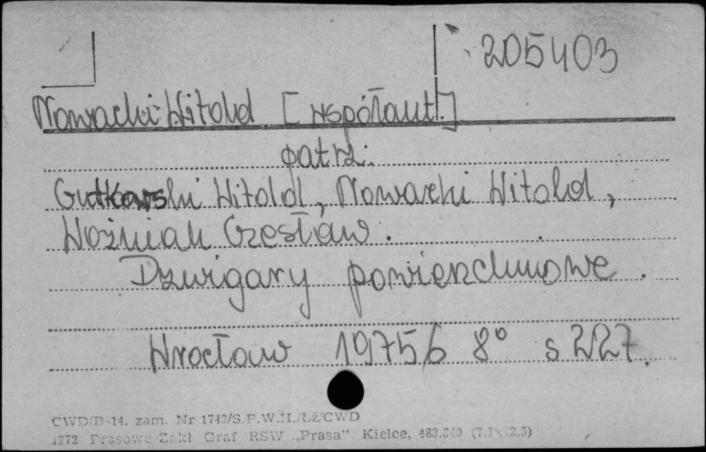 205403
Nowacki Witold [współaut.]
patrz:
Gutkowski Witold, Nowacki Witold,
Woźniak Czesław.
Dźwigary powierzchniowe.
Wrocław 1975/6 8° s 227.
CWD/B-14. zam. Nr 1743/S.P.W.H./Łż/CWD
1272 Prasowe Zakł. Graf RSW „Prasa” Kielce, 483.240 (7.5×12,5)